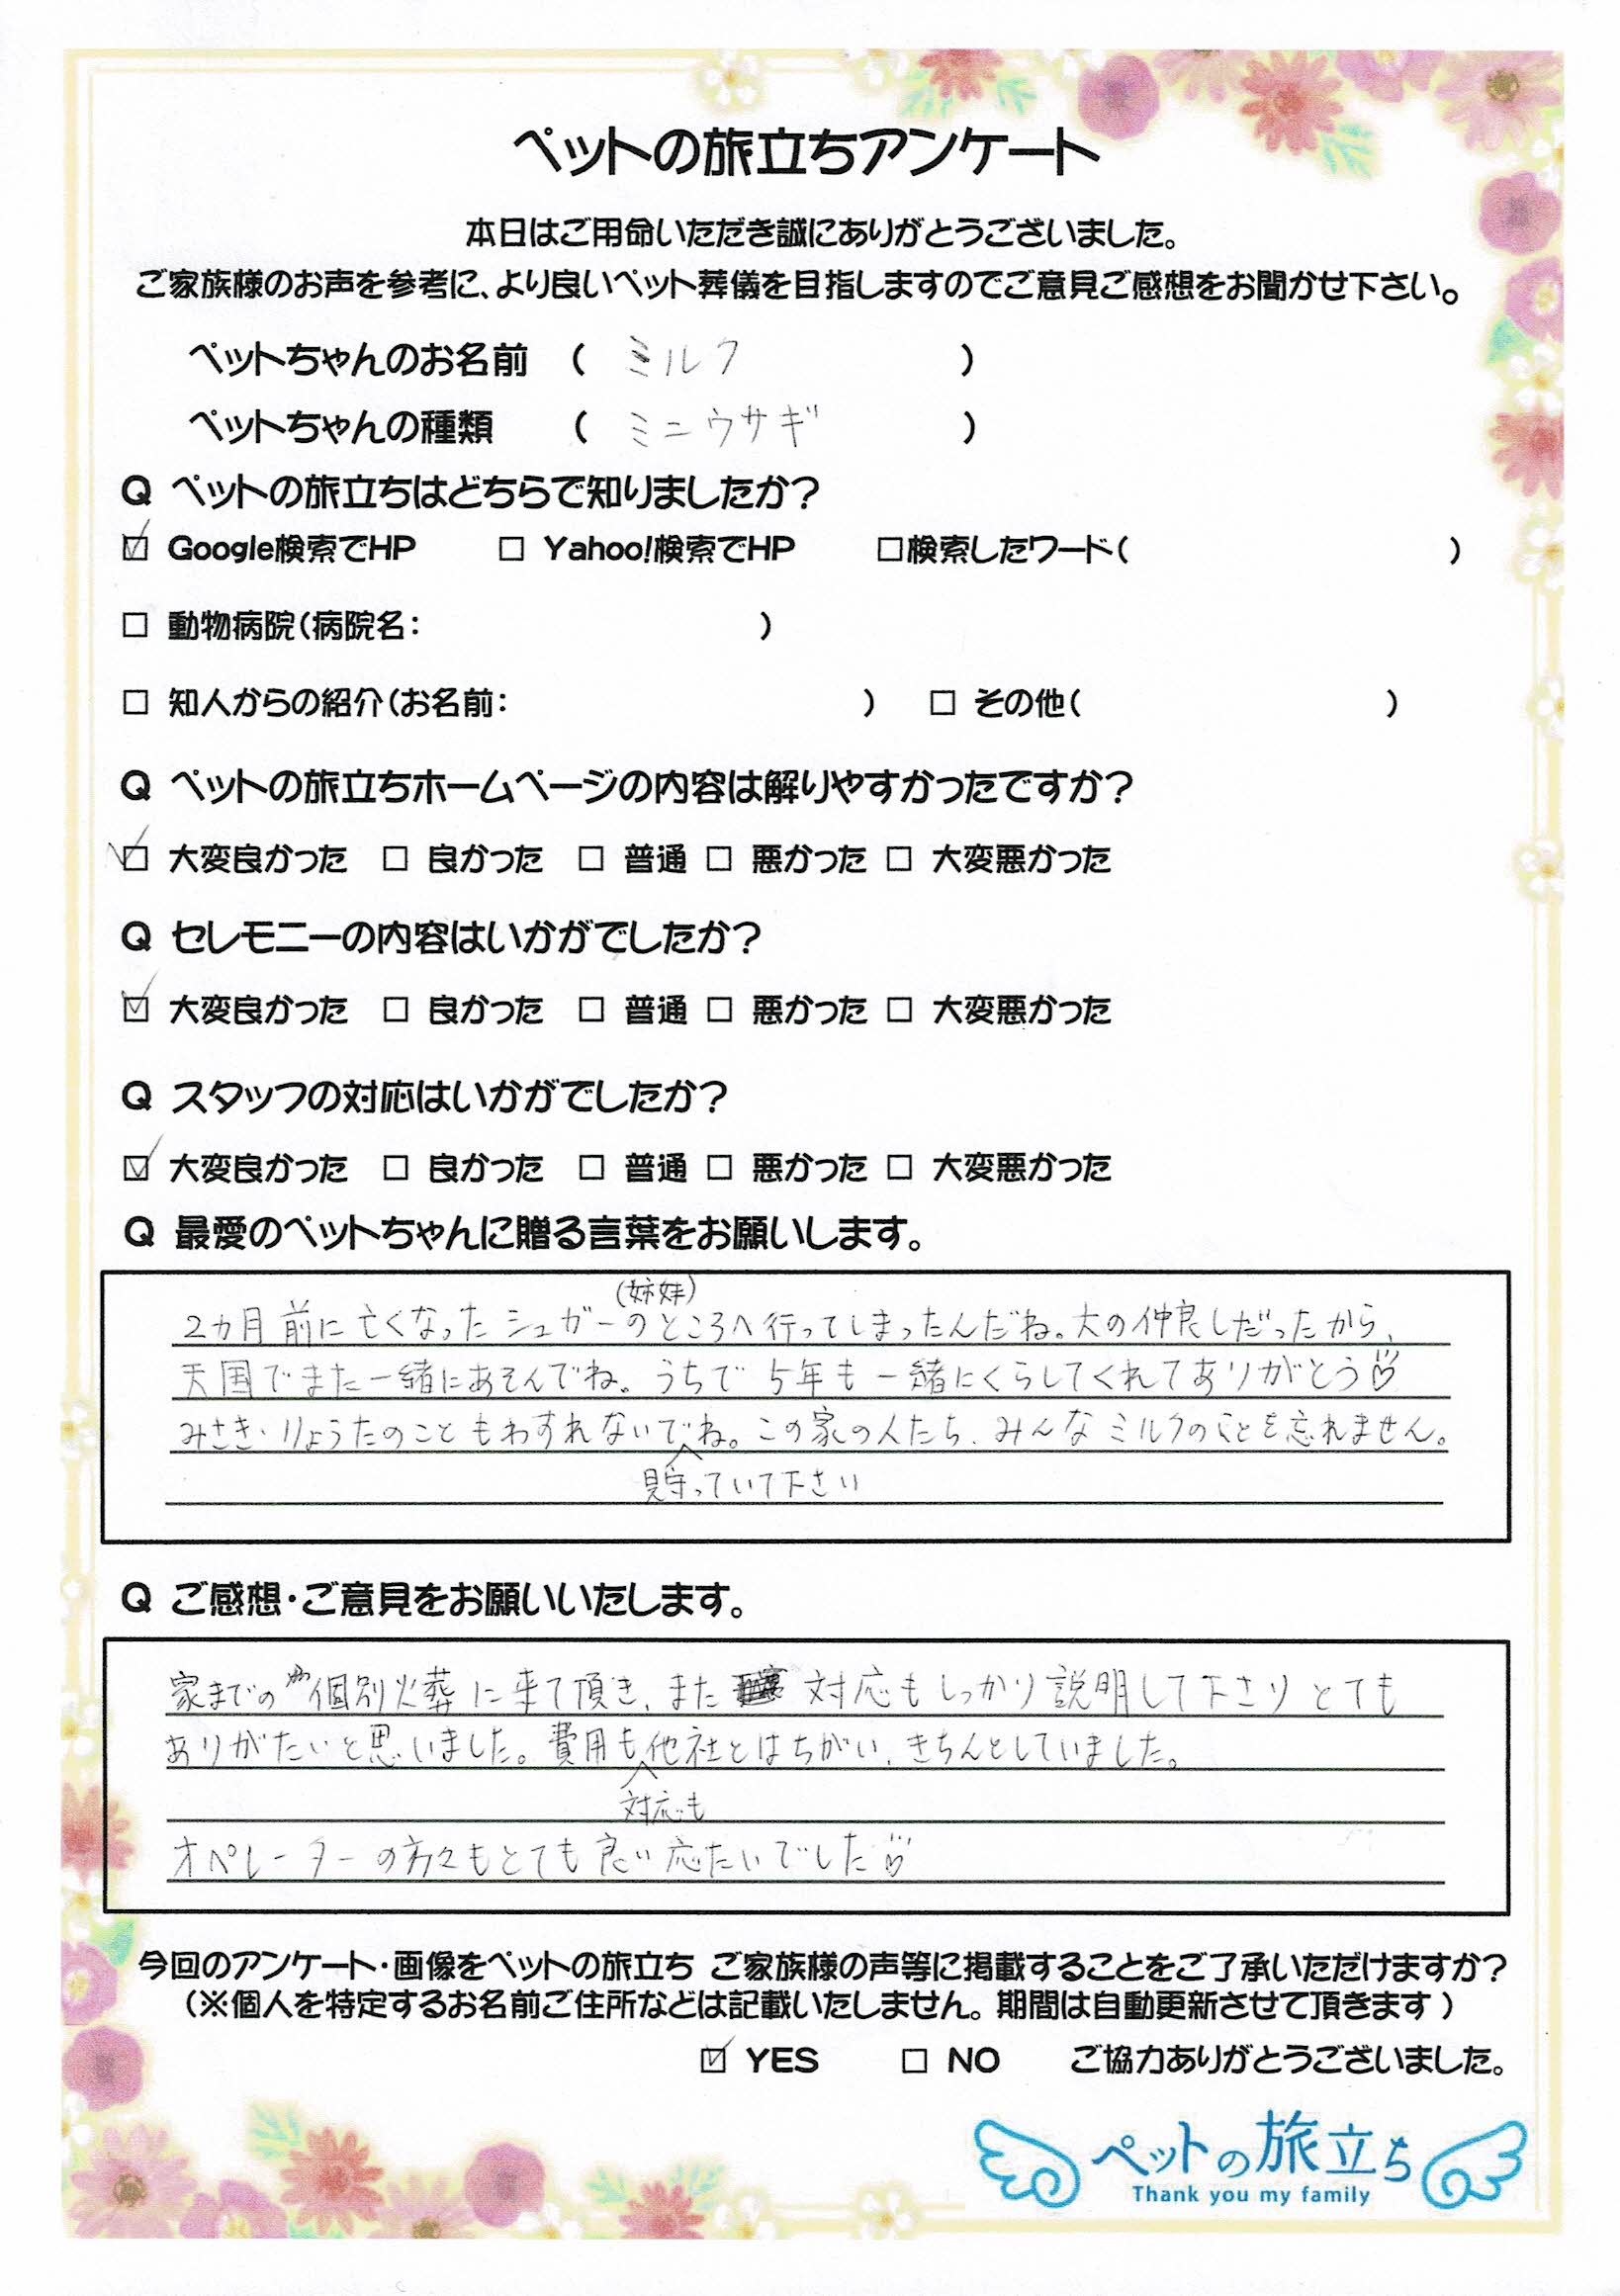 ペットの旅立ちアンケート
本日はご用命いただき誠にありがとうございました。
ご家族様のお声を参考に、より良いペット葬儀を目指しますのでご意見ご感想をお聞かせ下さい。
ペットちゃんのお名前 ( ミルク )
ペットちゃんの種類 ( ミニウサギ )
Q ペットの旅立ちはどちらで知りましたか?
☑ Google検索でHP □ Yahoo!検索でHP □検索したワード( )
□ 動物病院(病院名: )
□ 知人からの紹介(お名前: ) □ その他( )
Q ペットの旅立ちホームページの内容は解りやすかったですか?
☑ 大変良かった □ 良かった □ 普通 □ 悪かった □ 大変悪かった
Q セレモニーの内容はいかがでしたか?
☑ 大変良かった □ 良かった □ 普通 □ 悪かった □ 大変悪かった
Q スタッフの対応はいかがでしたか?
☑ 大変良かった □ 良かった □ 普通 □ 悪かった □ 大変悪かった
Q 最愛のペットちゃんに贈る言葉をお願いします。
(姉妹)
2カ月前に亡くなったシュガーのところへ行ってしまったんだね。大の仲良しだったから、
天国でまた一緒にあそんでね。うちで5年も一緒にくらしてくれてありがとう♡
みさき・りょうたのこともわすれないでね。この家の人たち、みんなミルクのことを忘れません。
見守っていて下さい
Q ご感想・ご意見をお願いいたします。
家までの個別火葬に来て頂き、また 対応もしっかり説明して下さりとても
ありがたいと思いました。費用も他社とはちがい、きちんとしていました。
対応も
オペレーターの方々もとても良い応たいでした♡
今回のアンケート・画像をペットの旅立ち ご家族様の声等に掲載することをご了承いただけますか?
(※個人を特定するお名前ご住所などは記載いたしません。期間は自動更新させて頂きます)
☑ YES □ NO ご協力ありがとうございました。
ペットの旅立ち
Thank you my family